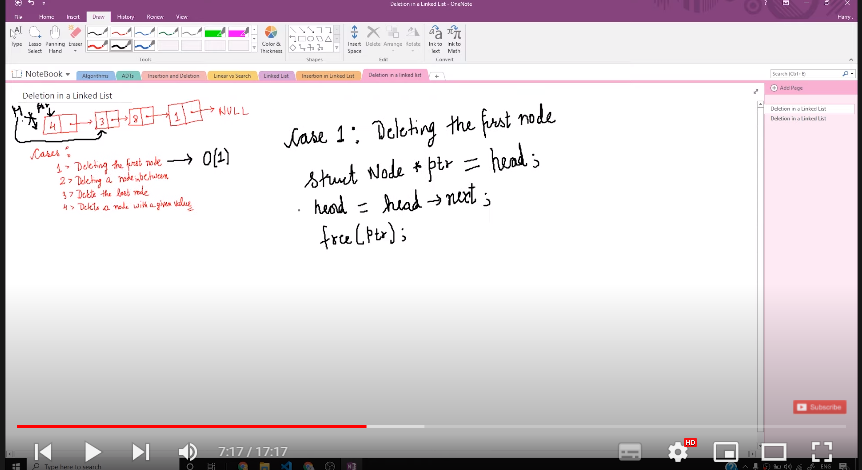 Deletion in a Linked List - OneNote
File Home Insert Draw History Review View
Harry
Type Lasso Select Panning Hand Eraser
Color & Thickness
Insert Space Delete Arrange Rotate
Ink to Text Ink to Math
Tools Shapes Edit Convert
NoteBook Algorithms ADTs Insertion and Deletion Linear vs Search Linked List Insertion in Linked List Deletion in a linked list
Search (Ctrl+E)
Add Page
Deletion in a Linked List
Deletion in a Linked List
Deletion in a Linked List
H ptr
4 3 8 1 NULL
Cases :
1 > Deleting the first node → O(1)
2 > Deleting a node in between
3 > Delete the last node
4 > Delete a node with a given value
Case 1: Deleting the first node
struct Node *ptr = head;
head = head → next;
free(ptr);
Subscribe
7:17 / 17:17
HD
Type here to search
ENG